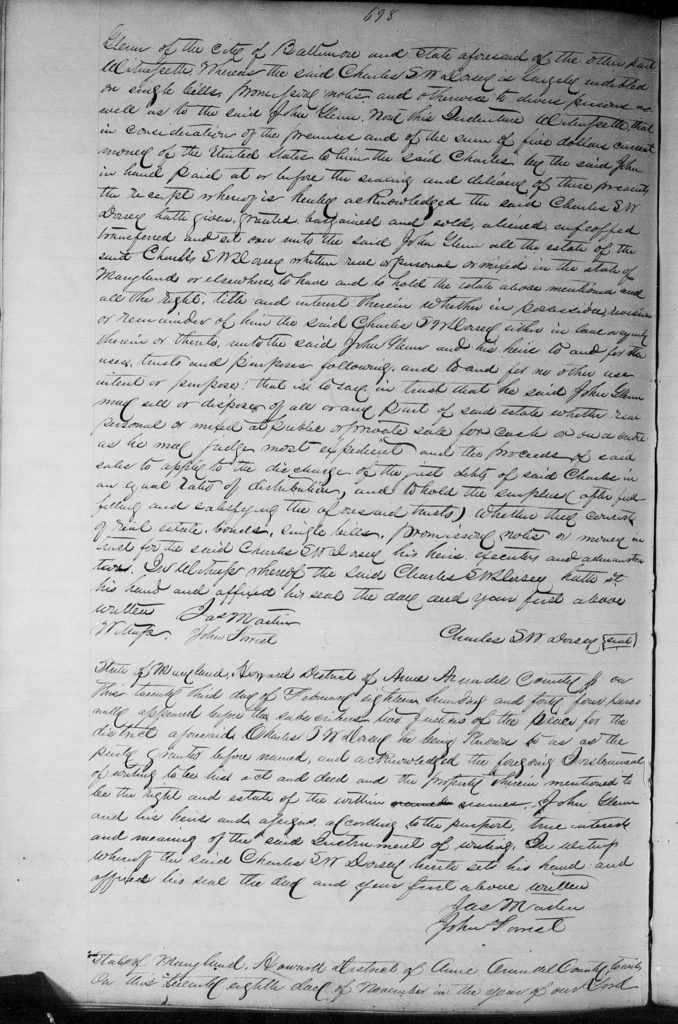 698
Glenn of the city of Baltimore and State aforesaid of the other part
Witnesseth. Whereas the said Charles S W Dorsey is largely indebted
on single bills, promissory notes and otherwise to divers persons as
well as to the said John Glenn. Now this Indenture Witnesseth, that
in consideration of the premises and of the sum of five dollars current
money of the United States to him the said Charles by the said John
in hand paid at or before the sealing and delivery of these presents
the receipt whereof is hereby acknowledged the said Charles S W
Dorsey hath given, granted bargained and sold, aliened, enfeoffed
transferred and set over unto the said John Glenn all the estate of the
said Charles S W Dorsey whether real or personal or mixed in the state of
Maryland or elsewhere, to have and to hold the estate above mentioned and
all the right, title and interest therein whether in possession, reversion
or remainder of him the said Charles S W Dorsey either in law or equity
therein or thereto, unto the said John Glenn and his heirs to and for the
uses, trusts and purposes following, and to and for no other use
intent or purpose: that is to say in trust that he said John Glenn
may sell or dispose of all or any part of said estate whether real
personal or mixed at public or private sale for cash or on a credit
as he may judge most expedient and the proceeds of said
sales to apply to the discharge of the just debts of said Charles in
an equal ratio of distribution, and to hold the surplus (after ful-
filling and satisfying the aforesaid trusts) whether they consist
of real estate, bonds, single bills, promissory notes or money in
trust for the said Charles S W Dorsey his heirs executors and administra
tors. In Witness whereof the said Charles S W Dorsey hath set
his hand and affixed his seal the day and year first above
written Jas Martin
Witness. John Charles S W Dorsey {seal}
State of Maryland, Howard District of Anne Arundel County, on
this twenty third day of February eighteen hundred and forty four perso
nally appeared before the subscribers two Justices of the peace for the
district aforesaid Charles S W Dorsey he being known to us as the
party grantor before named, and acknowledged the foregoing Instrument
of writing to be his act and deed and the property therein mentioned to
be the right and estate of the within John Glenn
and his heirs and assigns, according to the purport, true intent
and meaning of the said Instrument of writing. In witness
whereof the said Charles S W Dorsey hereto sets his hand and
affixed his seal the day and year first above written
Jas Martin
John
State of Maryland, Howard District of Anne Arundel County,
On this twenty eighth day of November in the year of our Lord